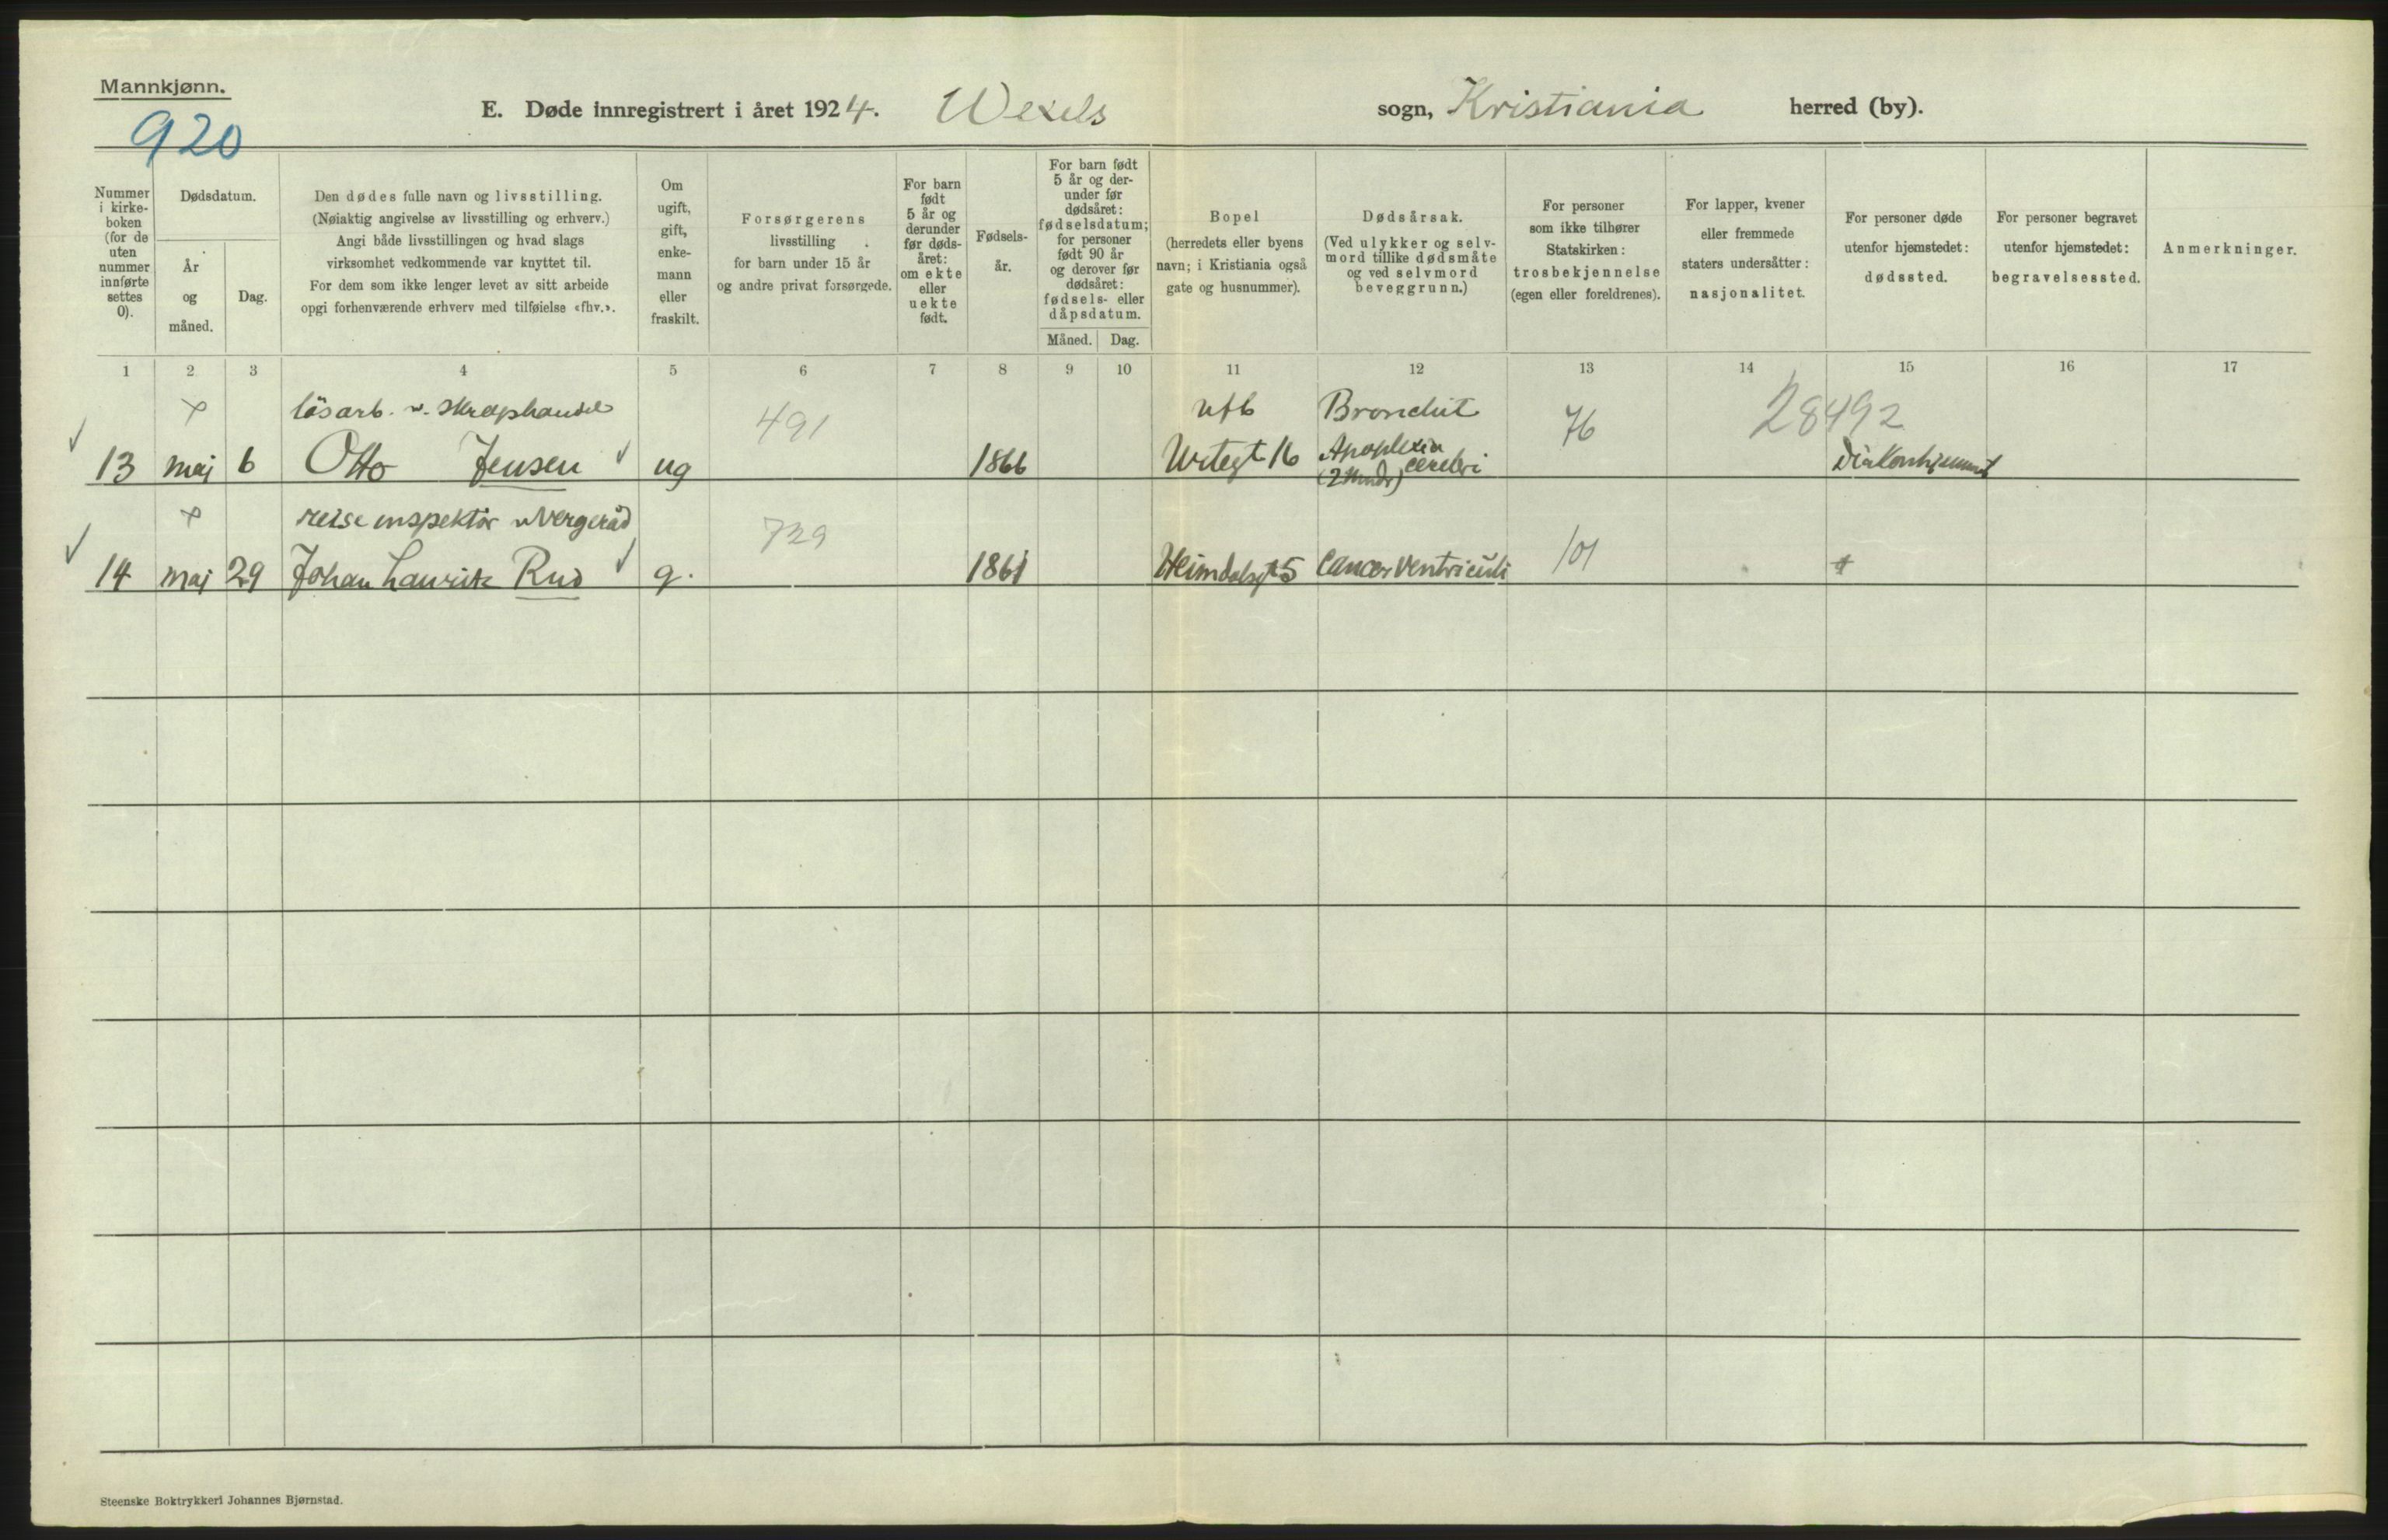 Mannkjønn.
920
E. Døde innregistrert i året 1924. Wexels sogn, Kristiania herred (by).
Nummer i kirkeboken (for de uten nummer innførte settes 0).
Dødsdatum.
År og måned.
Dag.
Den dødes fulle navn og livsstilling.
(Nøiaktig angivelse av livsstilling og erhverv.)
Angi både livsstillingen og hvad slags
virksomhet vedkommende var knyttet til.
For dem som ikke lenger levet av sitt arbeide
opgi forhenværende erhverv med tilføielse «fhv.».
Om ugift, gift, enkemann eller fraskilt.
Forsørgerens
livsstilling
for barn under 15 år
og andre privat forsørgede.
For barn født 5 år og derunder før dødsåret: om ekte eller uekte født.
Fødselsår.
For barn født 5 år og derunder før dødsåret: fødselsdatum; for personer født 90 år og derover før dødsåret: fødsels- eller dåpsdatum.
Måned. Dag.
Bopel
(herredets eller byens
navn; i Kristiania også
gate og husnummer).
Dødsårsak.
(Ved ulykker og selvmord tillike dødsmåte
og ved selvmord
beveggrunn.)
For personer
som ikke tilhører
Statskirken:
trosbekjennelse
(egen eller foreldrenes).
For lapper, kvener
eller fremmede
staters undersåtter:
nasjonalitet.
For personer døde
utenfor hjemstedet:
dødssted.
For personer begravet
utenfor hjemstedet:
begravelsessted.
Anmerkninger.
1 2 3 4 5 6 7 8 9 10 11 12 13 14 15 16 17
løsarb. v. skraphandel 491 ufb Bronchit 76 28492
13 maj 6 Otto Jensen ug 1866 Urtegt 16 Apoplexia cerebri (2 mndr) Diakonhjemmet
reiseinspektör v Vergeråd 729
14 maj 29 Johan Lauritz Rud g. 1861 Heimdalsgt 5 Cancer ventriculi 101
Steenske Boktrykkeri Johannes Bjørnstad.